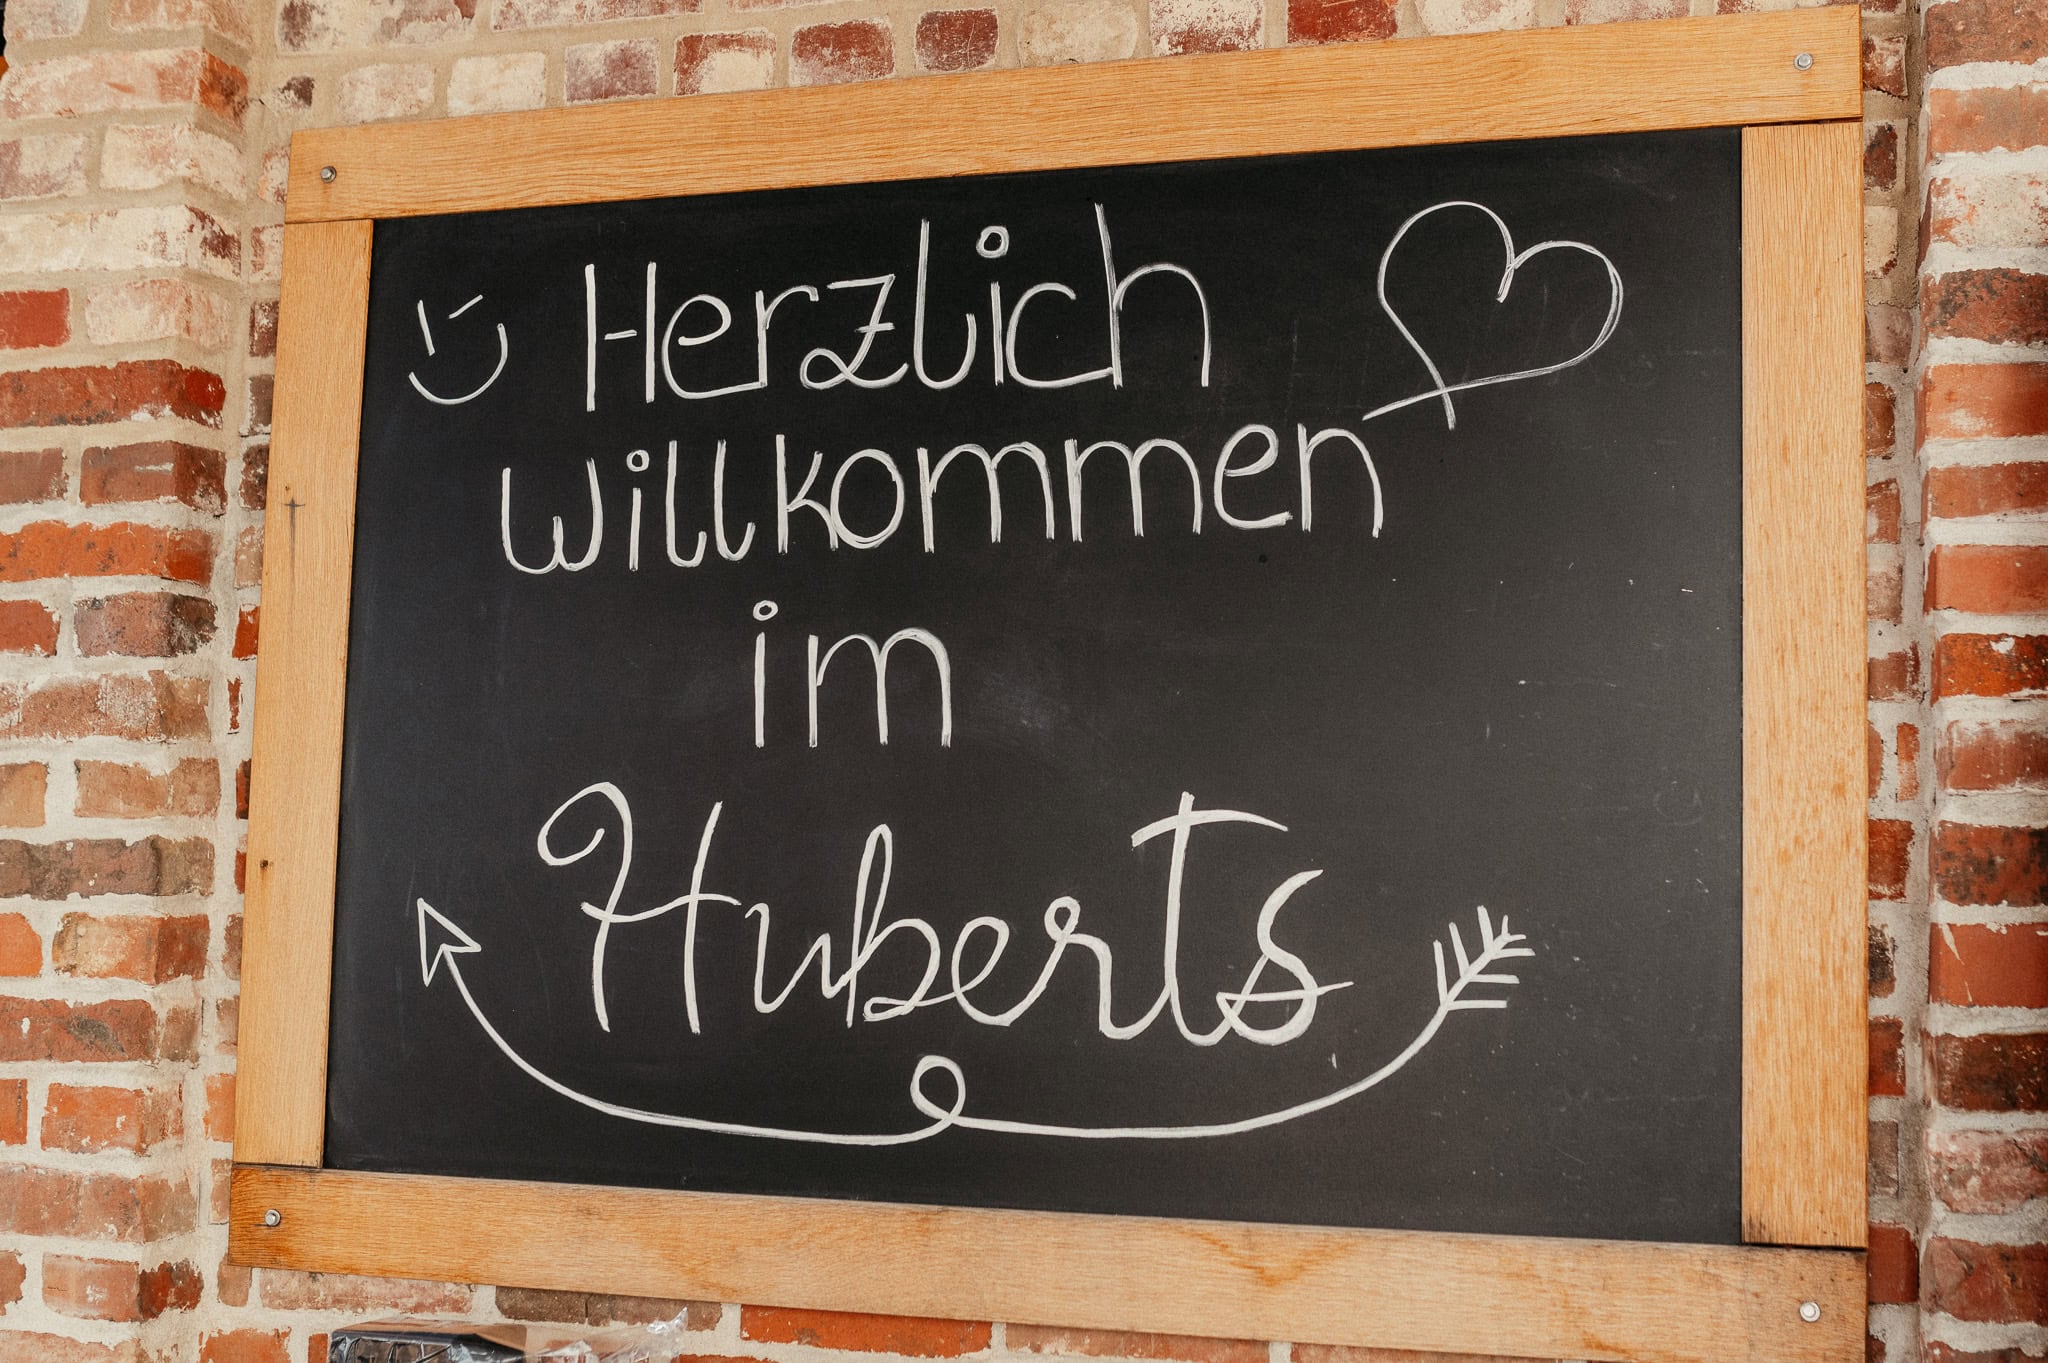 Herzlich
willkommen
im
Huberts